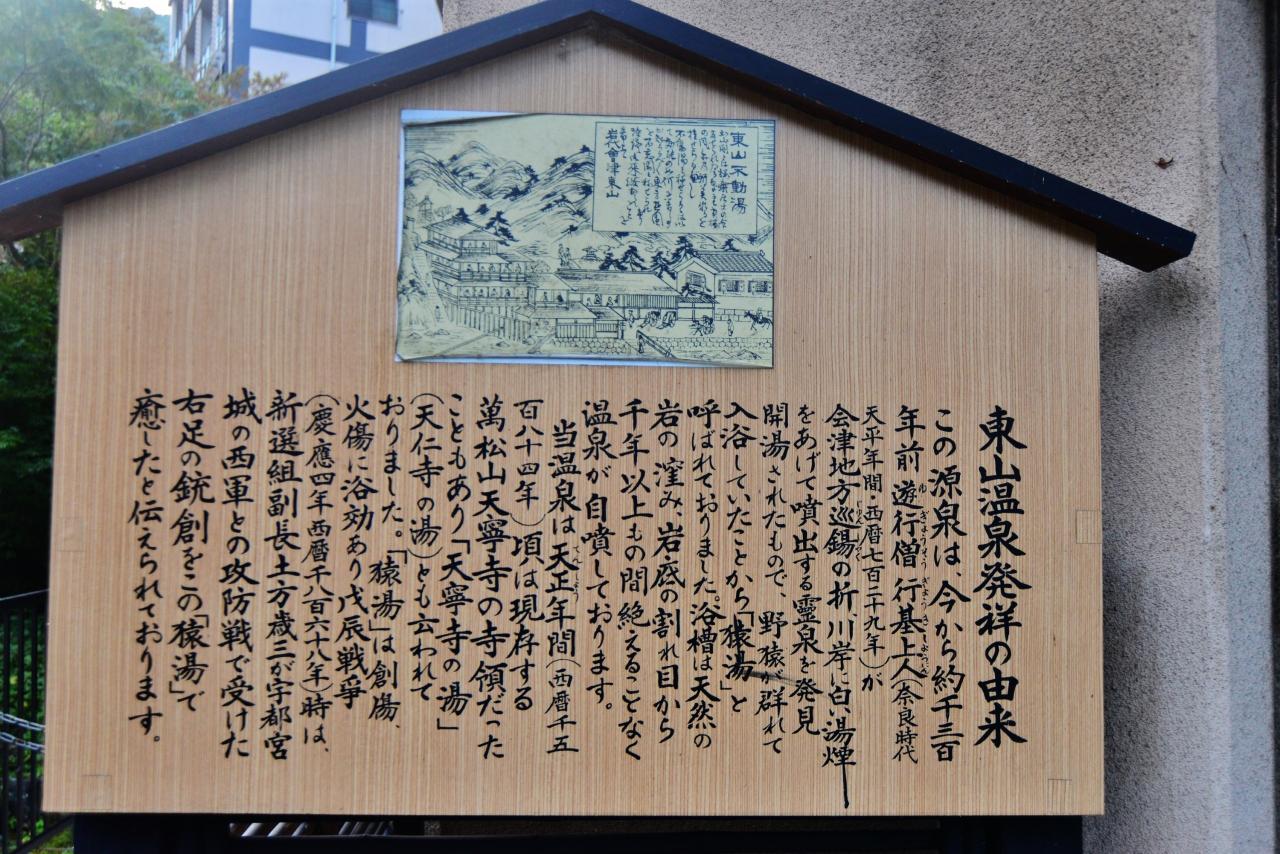 東山不動湯
岩代會津東山
東山温泉発祥の由来
この源泉は、今から約千三百
年前 遊行僧 行基上人(奈良時代
天平年間・西暦七百二十九年)が
会津地方巡錫の折川岸に白い湯煙
をあげて噴出する靈泉を発見
開湯されたもので、野猿が群れて
入浴していたことから「猿湯」と
呼ばれておりました。浴槽は天然の
岩の窪み、岩底の割れ目から
千年以上もの間絶えることなく
温泉が自噴しております。
当温泉は天正年間(西暦千五
百八十四年)頃は現存する
萬松山天寧寺の寺領だった
こともあり「天寧寺の湯」
(天仁寺の湯)とも云われて
おりました。「猿湯」は創傷、
火傷に浴効あり戊辰戦爭
(慶應四年西暦千八百六十八年)時は、
新選組副長土方歳三が宇都宮
城の西軍との攻防戦で受けた
右足の銃創をこの「猿湯」で
癒したと伝えられております。